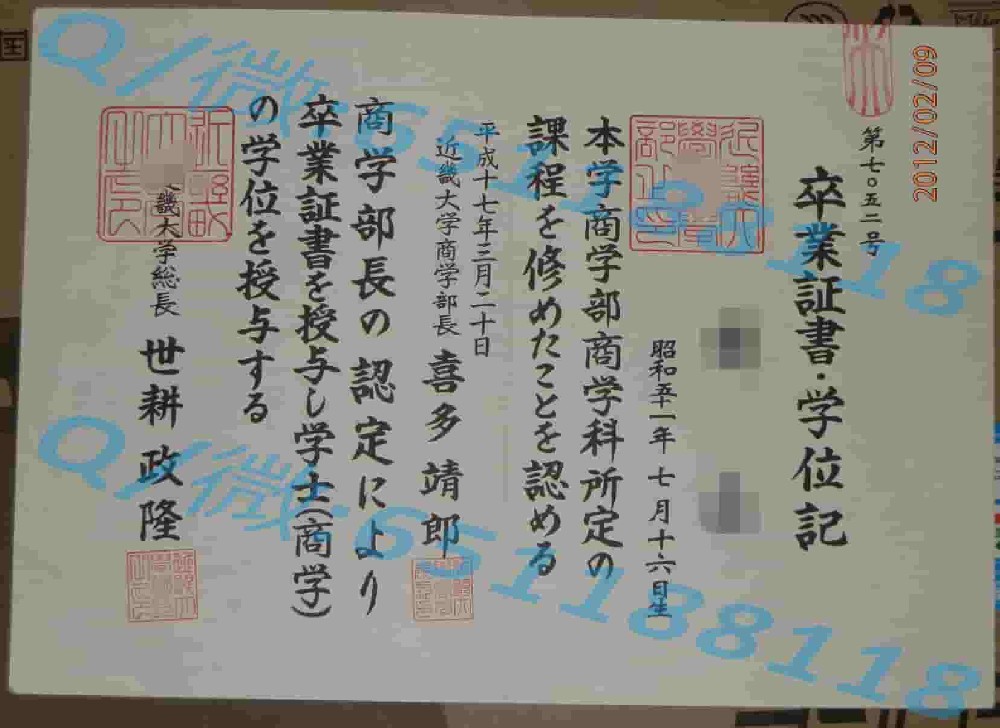 卒業証書・学位記
第七〇五二号
昭和五十一年 七月十六日生
本学商学部商学科所定の
課程を修めたことを認める
平成十七年三月二十日
近畿大学商学部長 喜多 靖郎
商学部長の認定により
卒業証書を授与し学士(商学)
の学位を授与する
畿大学総長 世耕 政隆
2012/02/09
Q/微:551188118
Q/微:551188118